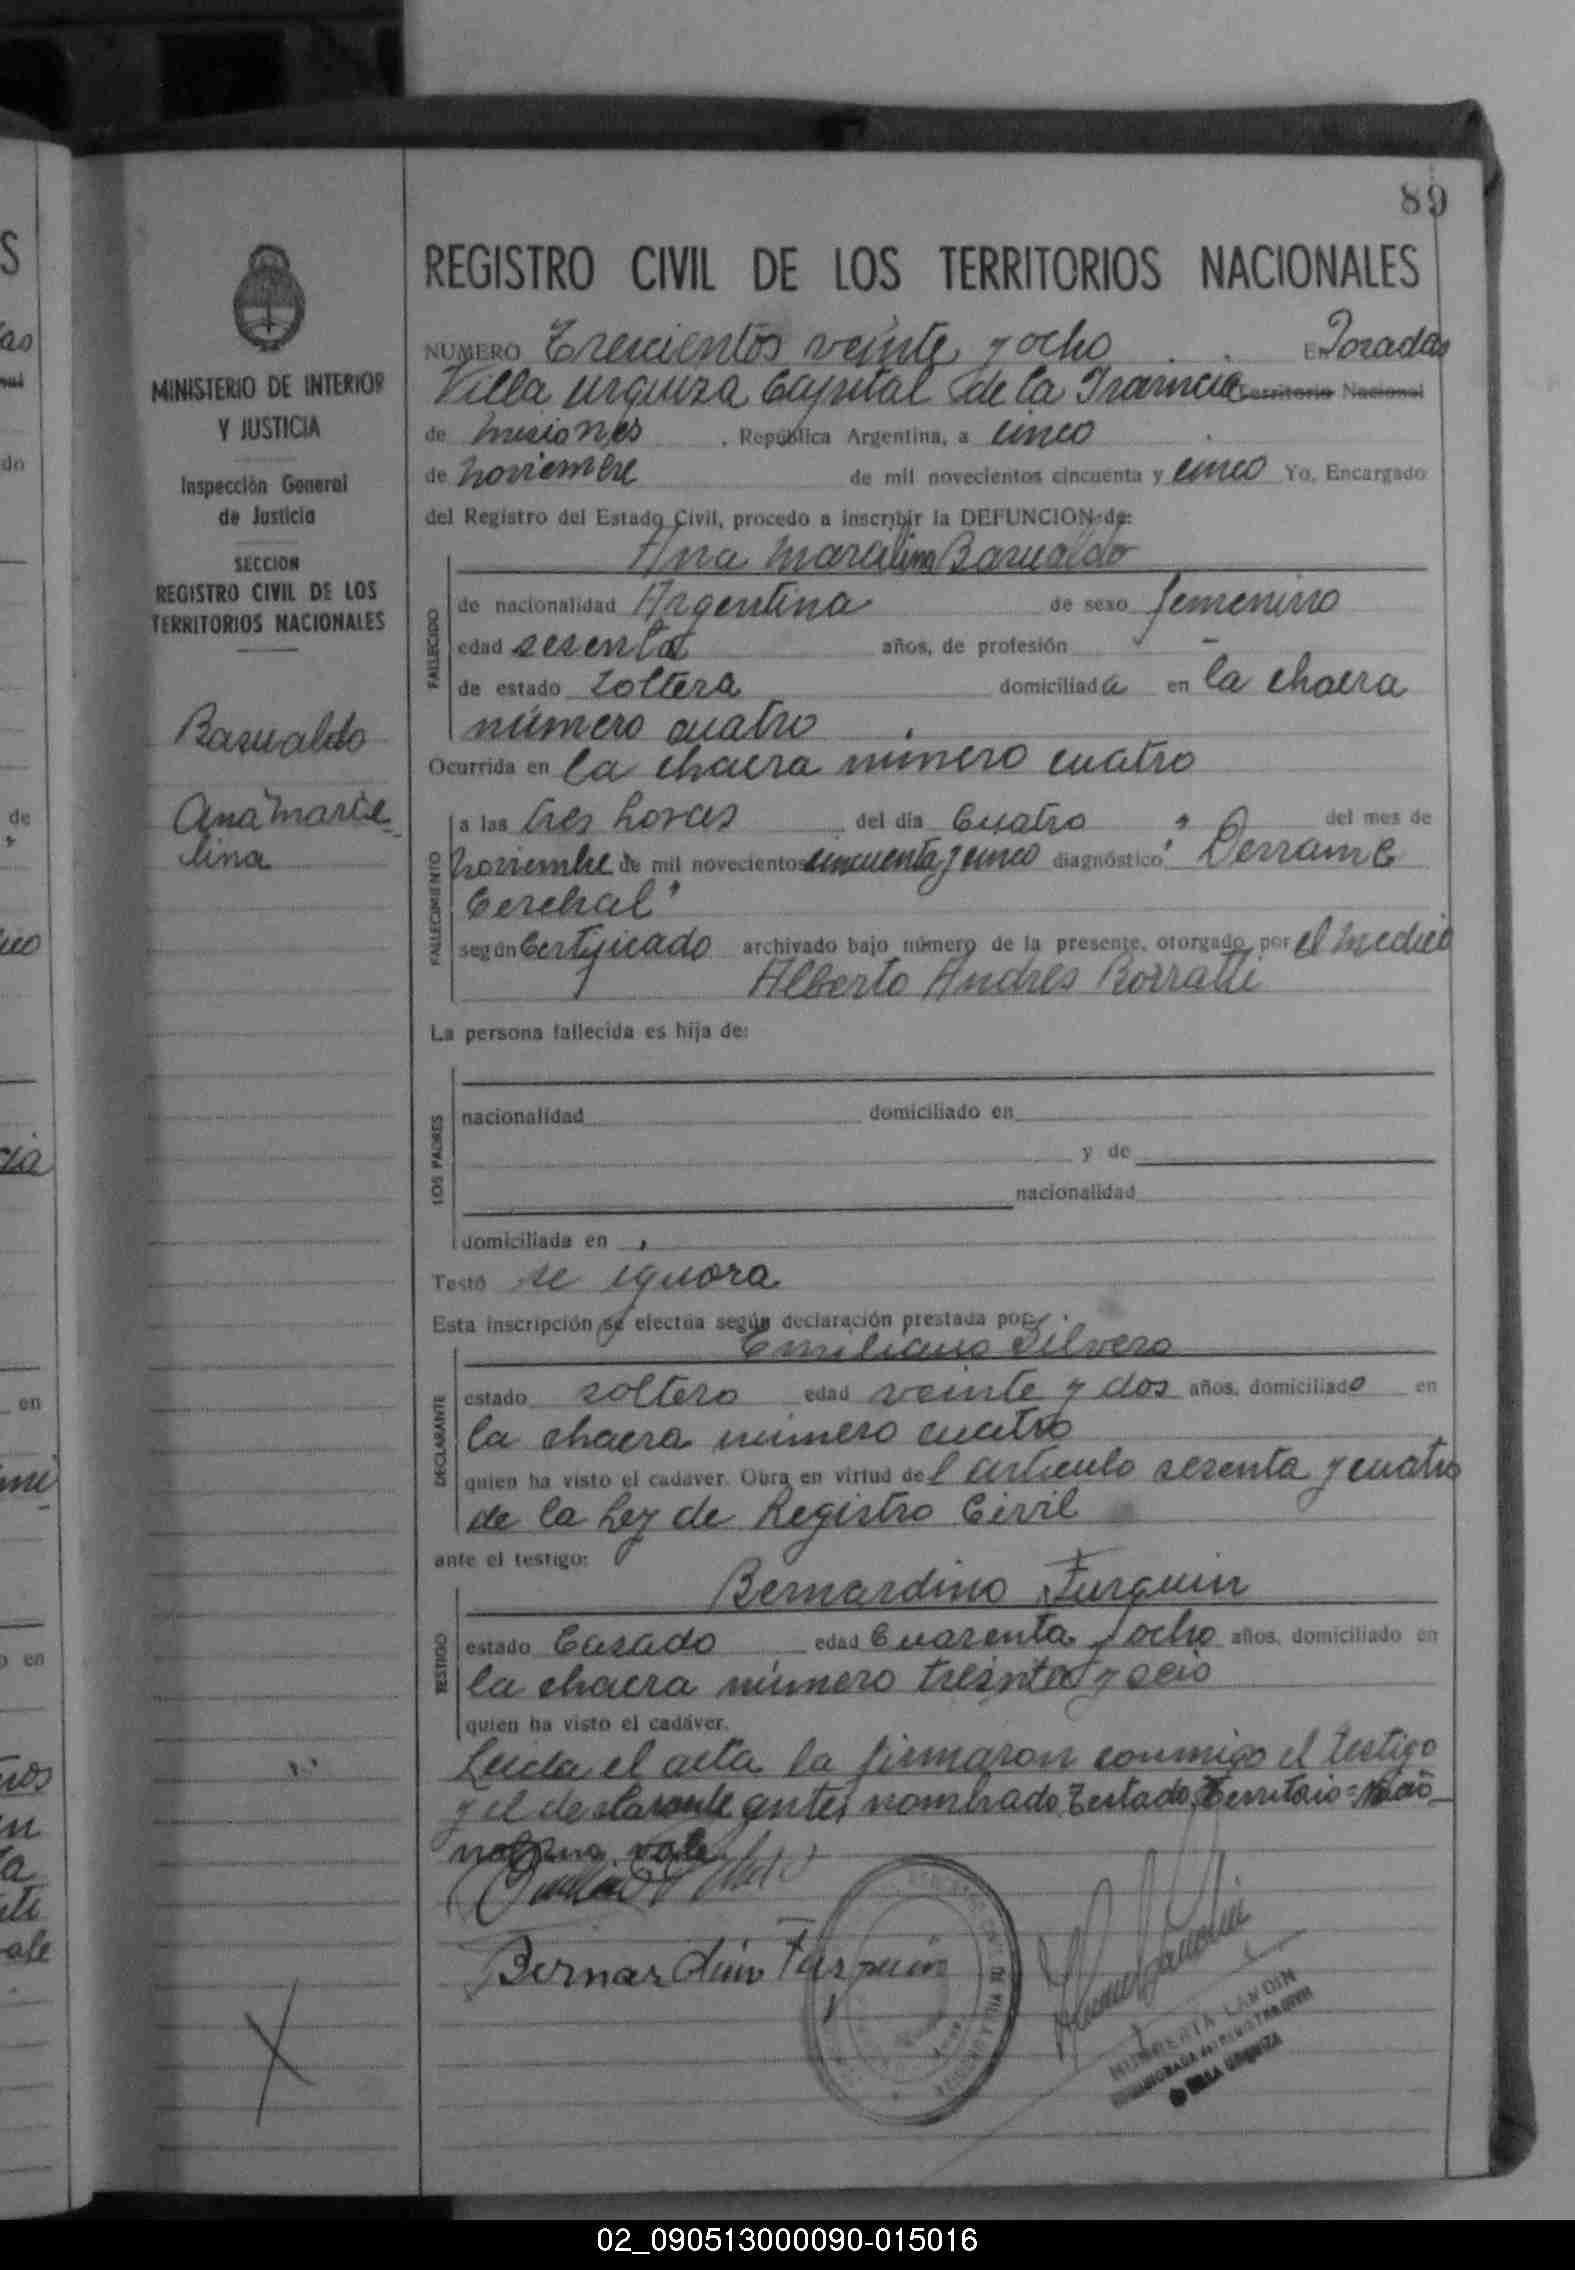 89
REGISTRO CIVIL DE LOS TERRITORIOS NACIONALES
MINISTERIO DE INTERIOR
Y JUSTICIA
Inspección General
de Justicia
SECCION
REGISTRO CIVIL DE LOS
TERRITORIOS NACIONALES
Basualdo
Ana Marce
lina
NUMERO Trescientos veinte y ocho En Posadas
Villa Urquiza Capital de la Provincia Territorio Nacional
de Misiones, República Argentina, a cinco
de Noviembre de mil novecientos cincuenta y cinco Yo, Encargado
del Registro del Estado Civil, procedo a inscribir la DEFUNCION de:
Ana Basualdo
FALLECIDO
de nacionalidad Argentina de sexo femenino
edad sesenta años, de profesión -
de estado soltera domiciliada en la chacra
número cuatro
Ocurrida en la chacra número cuatro
FALLECIMIENTO
a las tres horas del día Cuatro del mes de
Noviembre de mil novecientos cincuenta y cinco diagnóstico "Derrame
Cerebral"
según Certificado archivado bajo número de la presente, otorgado por el medico
Alberto Andres
La persona fallecida es hija de:
LOS PADRES
nacionalidad domiciliado en
y de
nacionalidad
domiciliada en
Testó se ignora
Esta inscripción se efectúa según declaración prestada por:
Emiliano Silvero
DECLARANTE
estado soltero edad veinte y dos años, domiciliado en
la chacra número cuatro
quien ha visto el cadáver. Obra en virtud del artículo sesenta y cuatro
de la Ley de Registro Civil
ante el testigo:
Bernardino Furquin
TESTIGO
estado Casado edad Cuarenta y ocho años, domiciliado en
la chacra número treinta y seis
quien ha visto el cadáver.
Leida el acta la firmaron conmigo el testigo
y el declarante antes nombrado Testado, Territorio = Nacio-
nal no vale
Bernardino Furquin
HUMBERTA LANDIN
ENCARGADA del REGISTRO CIVIL
VILLA URQUIZA
02_090513000090-015016